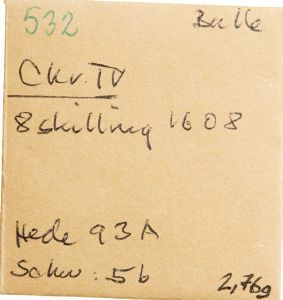 532 Bulk
Chr. IV
8 skilling 1608
Hede 93A
Schou: 56
2,76g